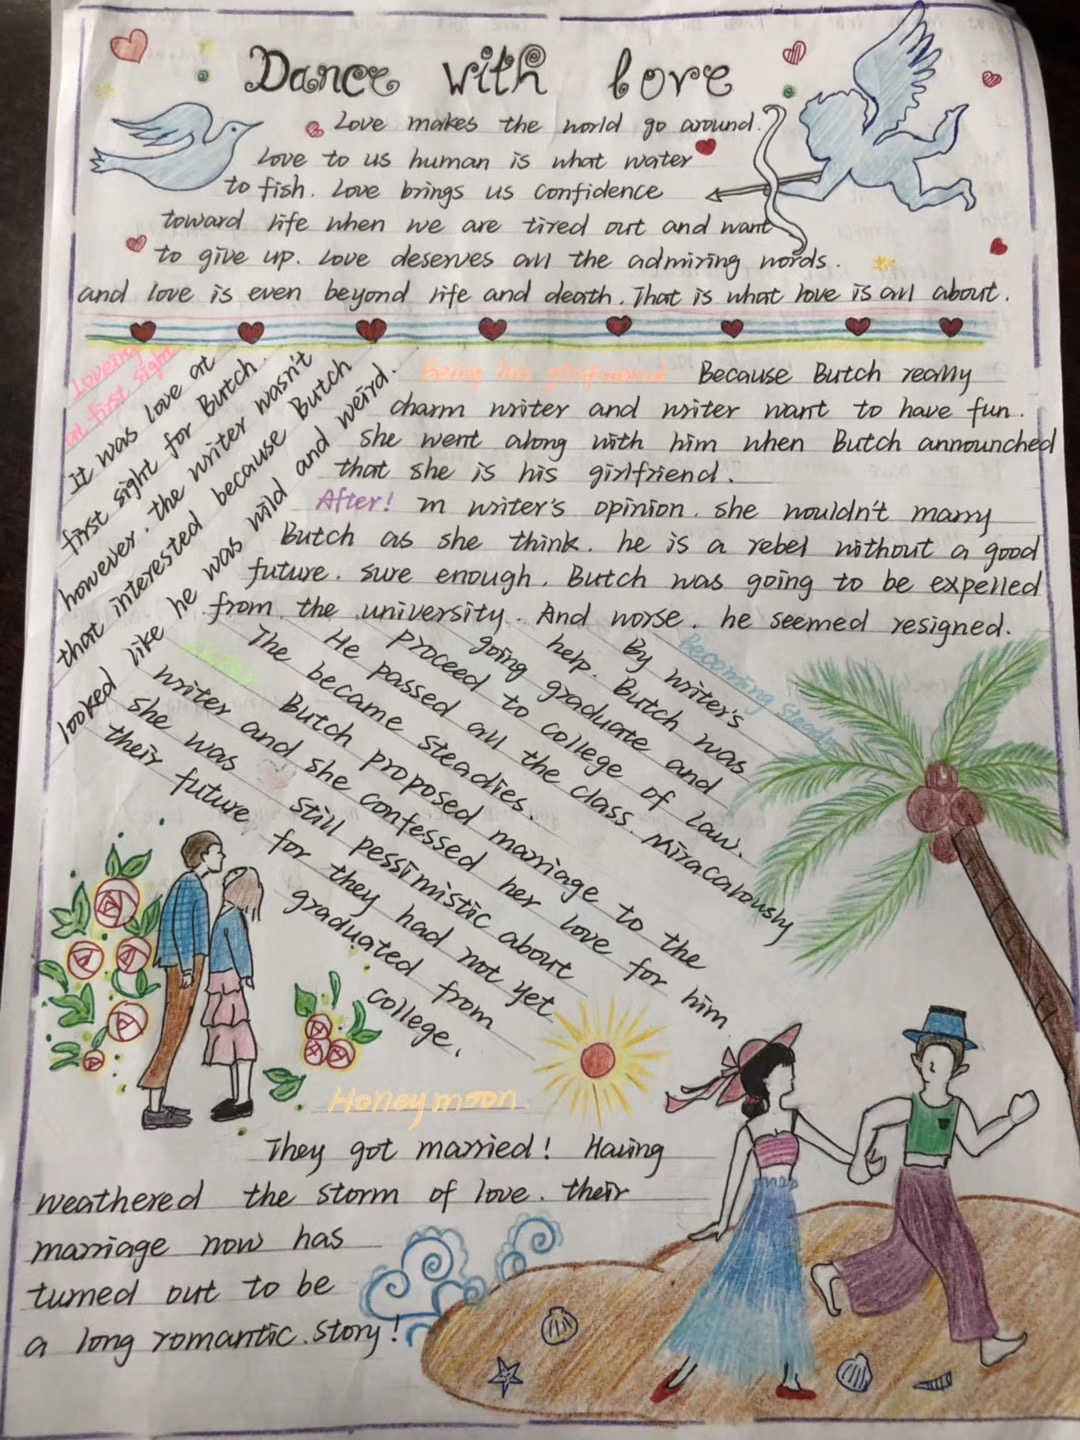 Dance with love
Love makes the world go around.
Love to us human is what water
to fish. Love brings us confidence
toward life when we are tired out and want
to give up. Love deserves all the admiring words.
and love is even beyond life and death. That is what love is all about.
Loveing
at first sight
It was love at
first sight for Butch.
however. the writer wasn't
that interested because Butch
looked like he was wild and weird.
Being his girlfriend Because Butch really
charm writer and writer want to have fun.
she went along with him when Butch announched
that she is his girlfriend.
After! In writer's opinion. she wouldn't marry
Butch as she think. he is a rebel without a good
future. Sure enough. Butch was going to be expelled
from the university. And worse. he seemed resigned.
Becoming steady
By writer's
help. Butch was
going graduate and
proceed to college of law.
He passed all the class. Miracarously
The became steadies.
Butch proposed marriage to the
writer and she confessed her love for him
she was still pessimistic about
their future for they had not yet
graduated from
college.
Honeymoon
They got married! Having
weathered the storm of love. their
marriage now has
turned out to be
a long romantic. story!